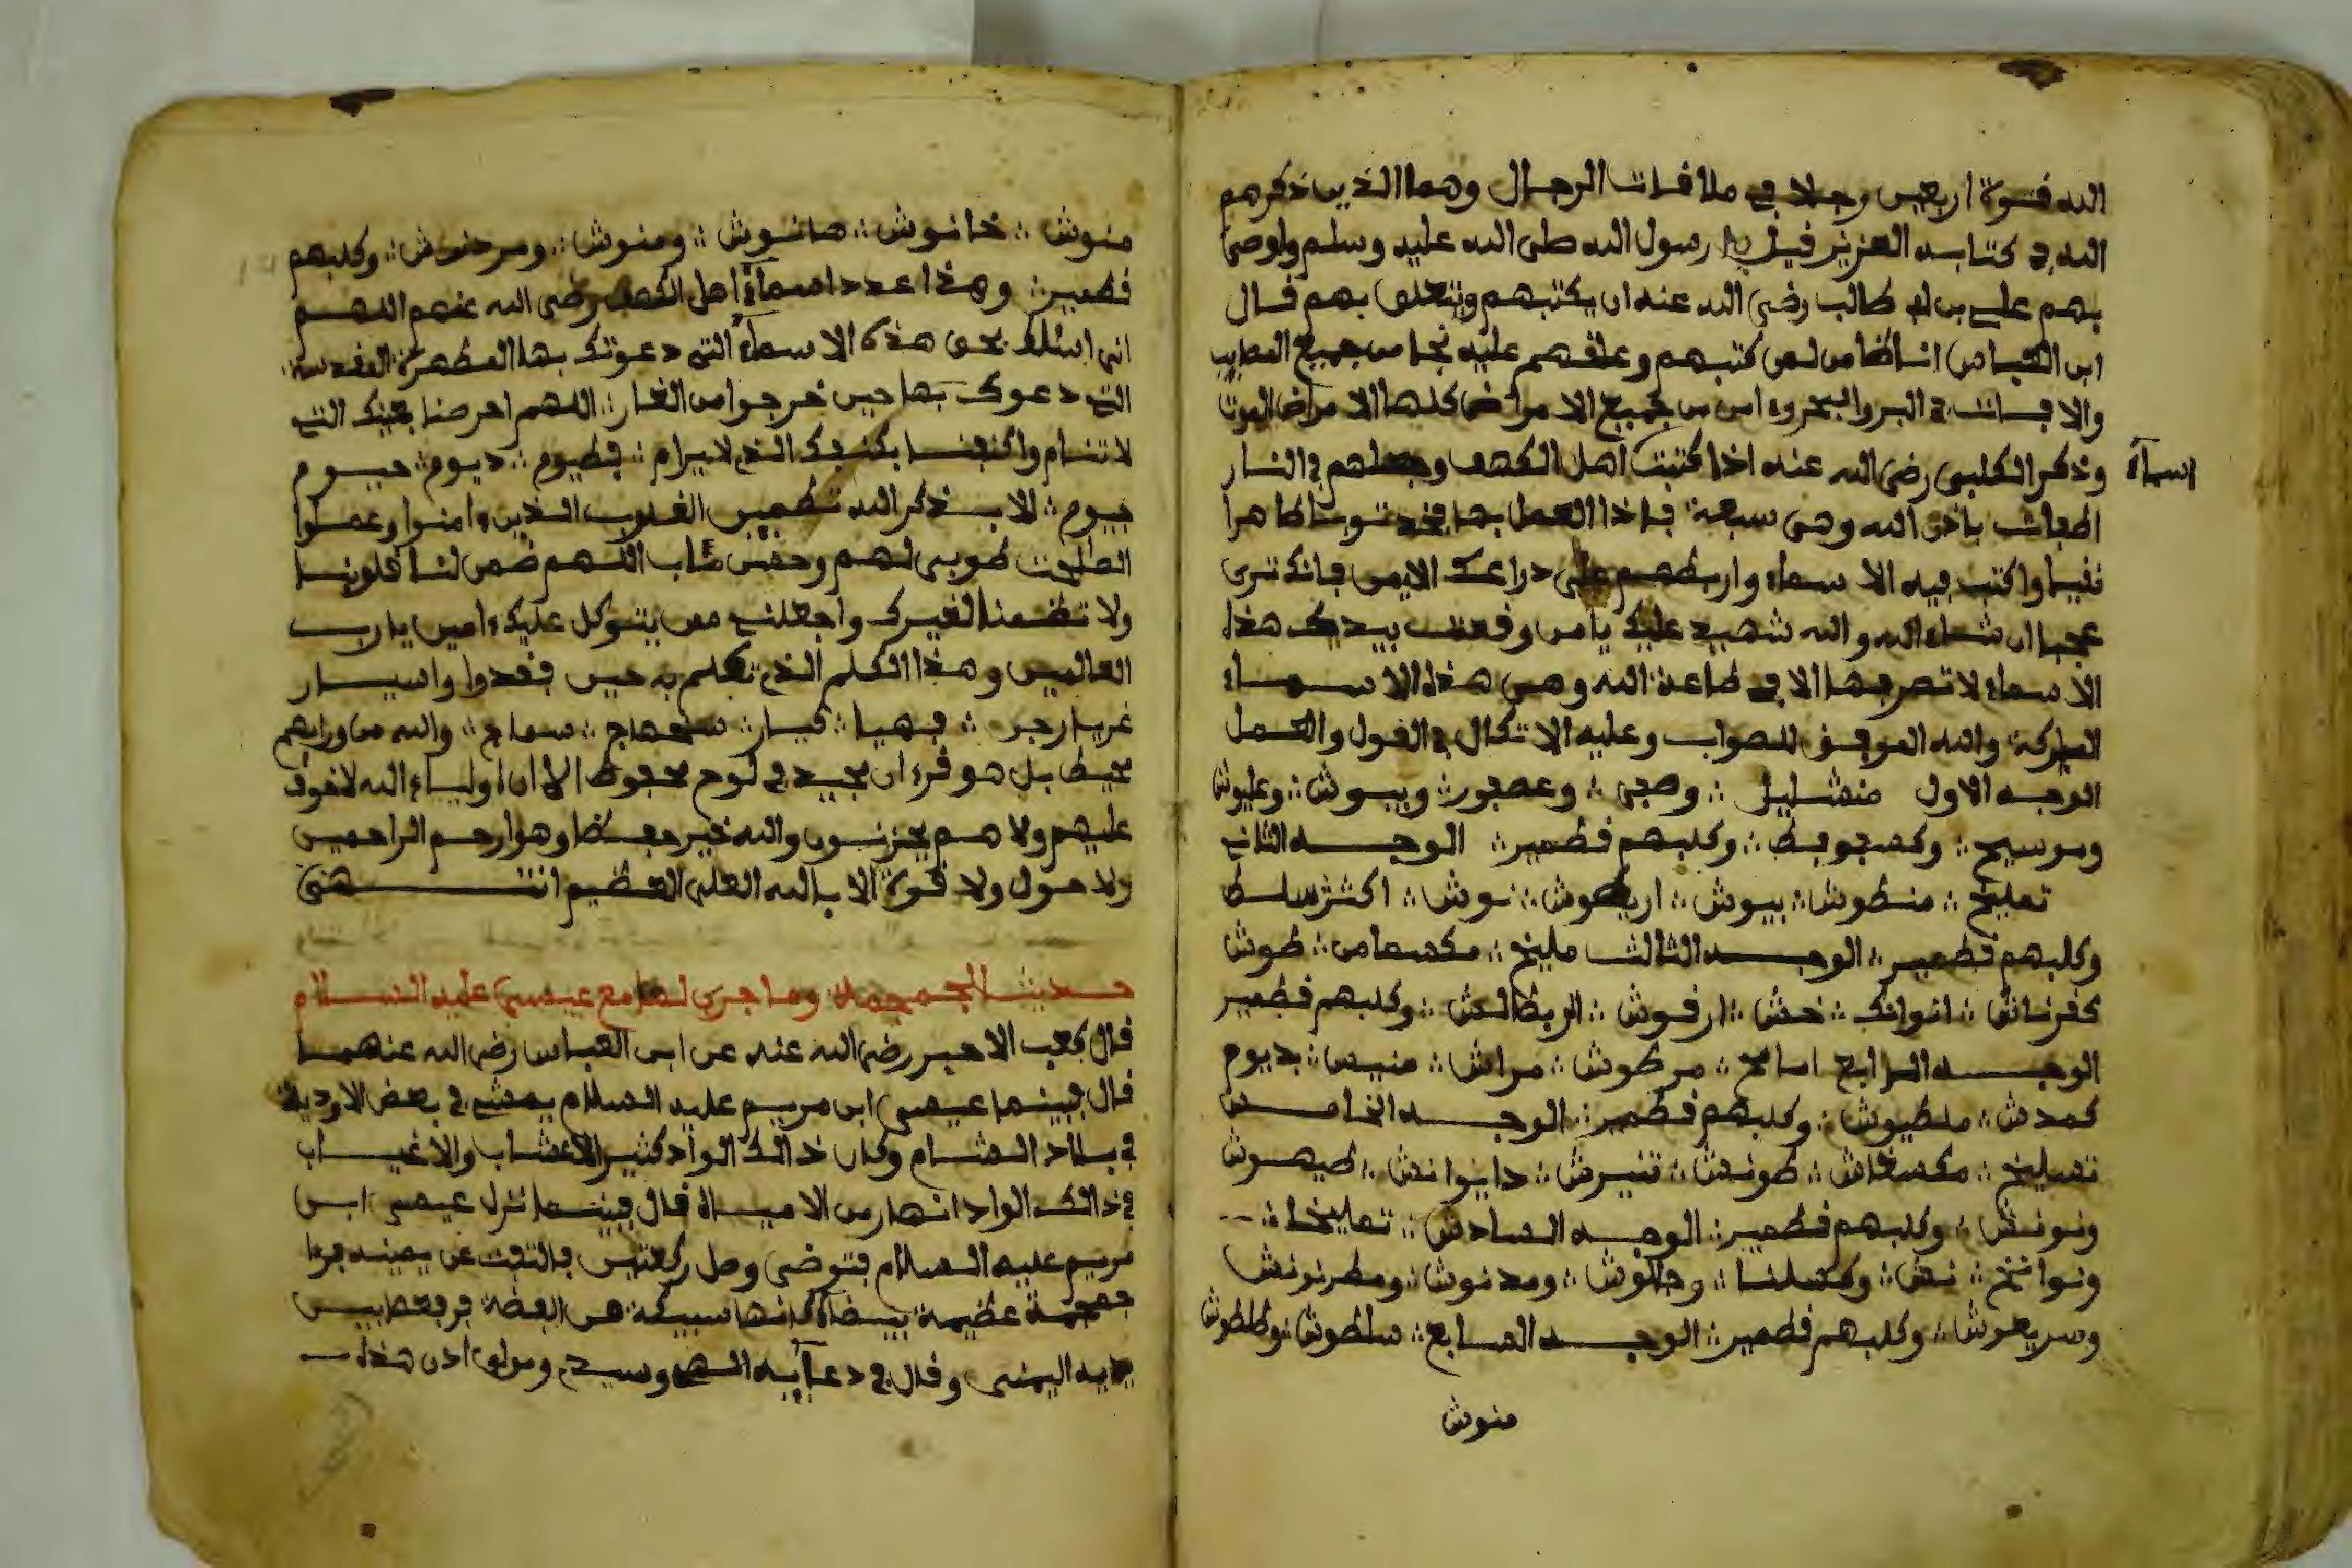 الله قوة اربعين رجلا في ملاقات الرجال وهما الذين ذكرهم
الله في كتابه العزيز قيل رسول الله صلى الله عليه وسلم ولوصى
بهم على بن ابي طالب رضي الله عنه ان يكتبهم ويتعلق بهم قال
ابن العباس من كتبهم وعلقهم عليه نجا من جميع المصايب
والافات في البر والبحر وامن من جميع الامراض كلها الا مراض الموت
وذكر الكلبى رضي الله عنه اذا كتبت اهل الكهف وجعلهم في النار
اسماء
اطفات باذن الله وهى سبعة فاذا العمل بها فخذ ثوبا طاهرا
نقيا واكتب فيه الاسماء واربطهم على دراعك الايمن فانك ترى
عجبا ان شاء الله والله شهيد عليك يا من وقعت بيدك هذا
الاسماء لا تصرفها الا في طاعة الله وهى هذه الاسماء
المباركة والله الموفق للصواب وعليه الاتكال في القول والعمل
الوجه الاول منشليل ⁘ وصبى ⁘ وعصبور ⁘ وبيوش ⁘ وعليوش
وموسيح ⁘ وكلبهم قطمير ⁘ الوجه الثاني
تمليخ ⁘ منطوش ⁘ بيوش ⁘ نوش ⁘
وكلبهم قطمير ⁘ الوجه الثالث مليخ ⁘ مكسمامن ⁘ طوش
كفرناش ⁘ انوانك ⁘ خش ⁘ ارقوش ⁘ وكلبهم قطمير
الوجه الرابع امالخ ⁘ مرطوش ⁘ مراش ⁘ منيس ⁘ بديوم
كمدش ⁘ ملطيوش ⁘ وكلبهم قطمير ⁘ الوجه الخامس
تمليخ ⁘ طونش ⁘ تنيرش ⁘ داينوانش ⁘ طيهوش
ونونش ⁘ وكلبهم قطمير ⁘ الوجه السادس ⁘ تمليخا ⁘
ونوانخ ⁘ نش ⁘ ومكسلنا ⁘ ومدنوش ⁘ ومطرنونش
وسريعرش ⁘ وكلبهم قطمير ⁘ الوجه السابع ⁘ سلطوش ⁘ وططوش
منوش
منوش ⁘ خانوش ⁘ صانوش ⁘ ومنوش ⁘ ومرحنوش ⁘ وكلبهم
قطمير ⁘ وهذا عدد اسماء اهل الكهف رضي الله عنهم اللهم
انى اسئلك بحق هذه الاسماء التي دعوتك بها المطهرة المقدسة
التي دعوك بها حين خرجوا من الغار ⁘ اللهم احرصنا بعينك التي
لا تنام واكنفنا بكنفك الذي لا يرام ⁘ فطيوم ⁘ ديوم ⁘ حيوم
فيوم ⁘ الا بذكر الله تطمين القلوب الذين ءامنوا وعملوا
الصلحت طوبى لهم وحسن مئاب اللهم ضمن لنا قلوبنا
ولا تظمنا لغيرك واجعلني ممن يتوكل عليك ءامين يا رب
العالمين وهذا الكلم الذي تكلم به حين فقدوا واسيار
غربا رجر ⁘ فهيا ⁘ فيار ⁘ سمهاج ⁘ سماج ⁘ والله من ورايهم
محيط بل هو قرءان مجيد في لوح محفوظ الا ان اولياء الله لا خوف
عليهم ولا هم يحزنون والله خير حفظا وهو ارحم الراحمين
ولا حول ولا قوة الا بالله العلي العظيم انتهى
حديث الجمجمة وما جرى لها مع عيسى عليه السلام
قال كعب الاحبر رضي الله عنه عن ابن العباس رضي الله عنهما
قال فبينما عيسى ابن مريم عليه السلام يمشي في بعض الاودية
في بلاد الشام وكان ذالك الواد كثير الاعشاب والاغياب
في ذالك الواد انهار من الامياه قال فبينما نزل عيسى ابن
مريم عليه السلام فتوضى وصل ركعتين فالتفت عن يمينه فرءا
جمجمة عظيمة بيضاء كانها سبيكة من الفضة فرفعها بين
يديه اليمنى وقال في دعايه الهي وسيدي ومولي اذن هذه